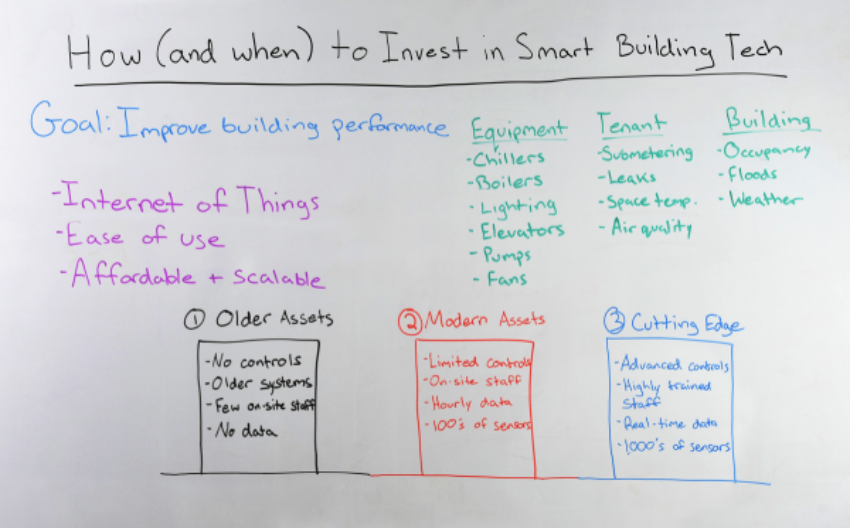 How (and when) to Invest in Smart Building Tech
Goal: Improve building performance
-Internet of Things
-Ease of use
-Affordable + scalable
Equipment
-Chillers
-Boilers
-Lighting
-Elevators
-Pumps
-Fans
Tenant
-Submetering
-Leaks
-Space temp.
-Air quality
Building
-Occupancy
-Floods
-Weather
① Older Assets
-No controls
-Older systems
-Few on-site staff
-No data
② Modern Assets
-Limited controls
-On-site staff
-Hourly data
-100's of sensors
③ Cutting Edge
-Advanced controls
-Highly trained
staff
-Real-time data
-1,000's of sensors